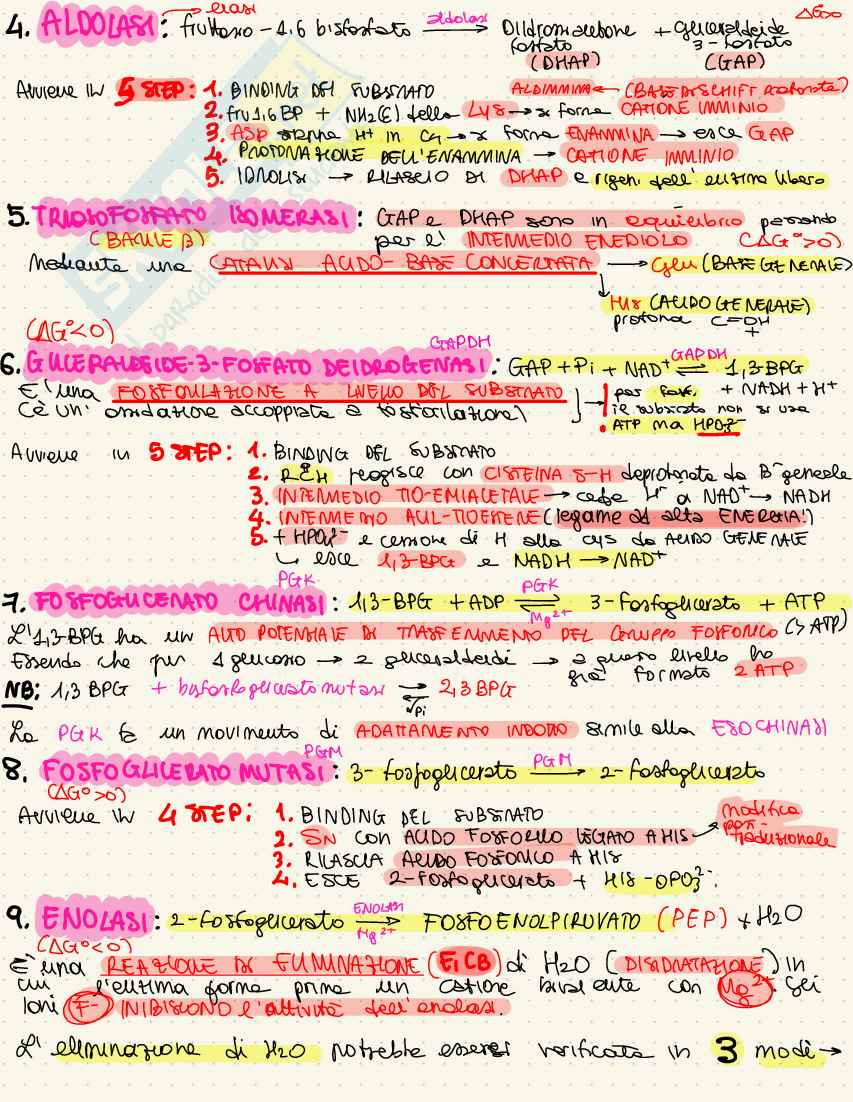 → liasi
4. ALDOLASI: fruttosio-1,6 bisfosfato aldolasi → Diidrossiacetone + gliceraldeide ΔG>0
fosfato 3-fosfato
(DHAP) (GAP)
Avviene in 5 STEP: 1. BINDING DEL SUBSTRATO ALDIMMINA ← (BASE DI SCHIFF protonata)
2. fru1,6BP + NH2(ε) della Lys → si forma CATIONE IMMINIO
3. Asp strappa H+ in C4 → si forma ENAMMINA → esce GAP
4. PROTONAZIONE DELL'ENAMMINA → CATIONE IMMINIO
5. IDROLISI → RILASCIO DI DHAP e rigen. dell'enzima libero
5. TRIOSOFOSFATO ISOMERASI: GAP e DHAP sono in equilibrio passando
(BARILE β) per l' INTERMEDIO ENEDIOLO (ΔG°>0)
Mediante una CATALISI ACIDO-BASE CONCERTATA → Glu (BASE GENERALE)
↓ His (ACIDO GENERALE)
protona C=OH
+
(ΔG°<0) GAPDH
6. GLICERALDEIDE-3-FOSFATO DEIDROGENASI: GAP+Pi + NAD+ GAPDH ⇌ 1,3-BPG
È una FOSFORILAZIONE A LIVELLO DEL SUBSTRATO → ! per fosf. + NADH + H+
(c'è un' ossidazione accoppiata a fosforilazione) il substrato non si usa
ATP ma HPO4²-
Avviene in 5 STEP: 1. BINDING DEL SUBSTRATO
2. RCH reagisce con CISTEINA S-H deprotonata da B- generale
3. INTERMEDIO TIO-EMIACETALE → cede H- a NAD+ → NADH
4. INTERMEDIO ACIL-TIOESTERE (legame ad alta ENERGIA!)
5. + HPO4²- e cessione di H alla cys da ACIDO GENERALE
↳ esce 1,3-BPG e NADH → NAD+
PGK
7. FOSFOGLICERATO CHINASI: 1,3-BPG + ADP PGK ⇌ Mg2+ 3-fosfoglicerato + ATP
L'1,3-BPG ha un ALTO POTENZIALE DI TRASFERIMENTO DEL GRUPPO FOSFORICO (> ATP)
Essendo che per 1 glucosio → 2 gliceraldeidi → a questo livello ho
già formato 2 ATP
NB: 1,3 BPG + bisfosfoglicerato mutasi ⇌ Pi 2,3 BPG
La PGK fa un movimento di ADATTAMENTO INDOTTO simile alla ESOCHINASI
PGM
8. FOSFOGLICERATO MUTASI: 3-fosfoglicerato PGM → 2-fosfoglicerato
(ΔG°>0)
Avviene in 4 STEP: 1. BINDING DEL SUBSTRATO modifica
2. SN con ACIDO FOSFORICO LEGATO A HIS → post-traduzionale
3. RILASCIA ACIDO FOSFORICO A HIS
4. ESCE 2-fosfoglicerato + HIS-OPO3²-.
9. ENOLASI: 2-fosfoglicerato ENOLASI → Mg2+ FOSFOENOLPIRUVATO (PEP) + H2O
(ΔG°<0)
È una REAZIONE DI ELIMINAZIONE (E1CB) di H2O (DISIDRATAZIONE) in
cui l'enzima forma prima un catione bivalente con Mg2+. Gli
Ioni F- INIBISCONO l'attività dell'enolasi.
L' eliminazione di H2O potrebbe essersi verificata in 3 modi →